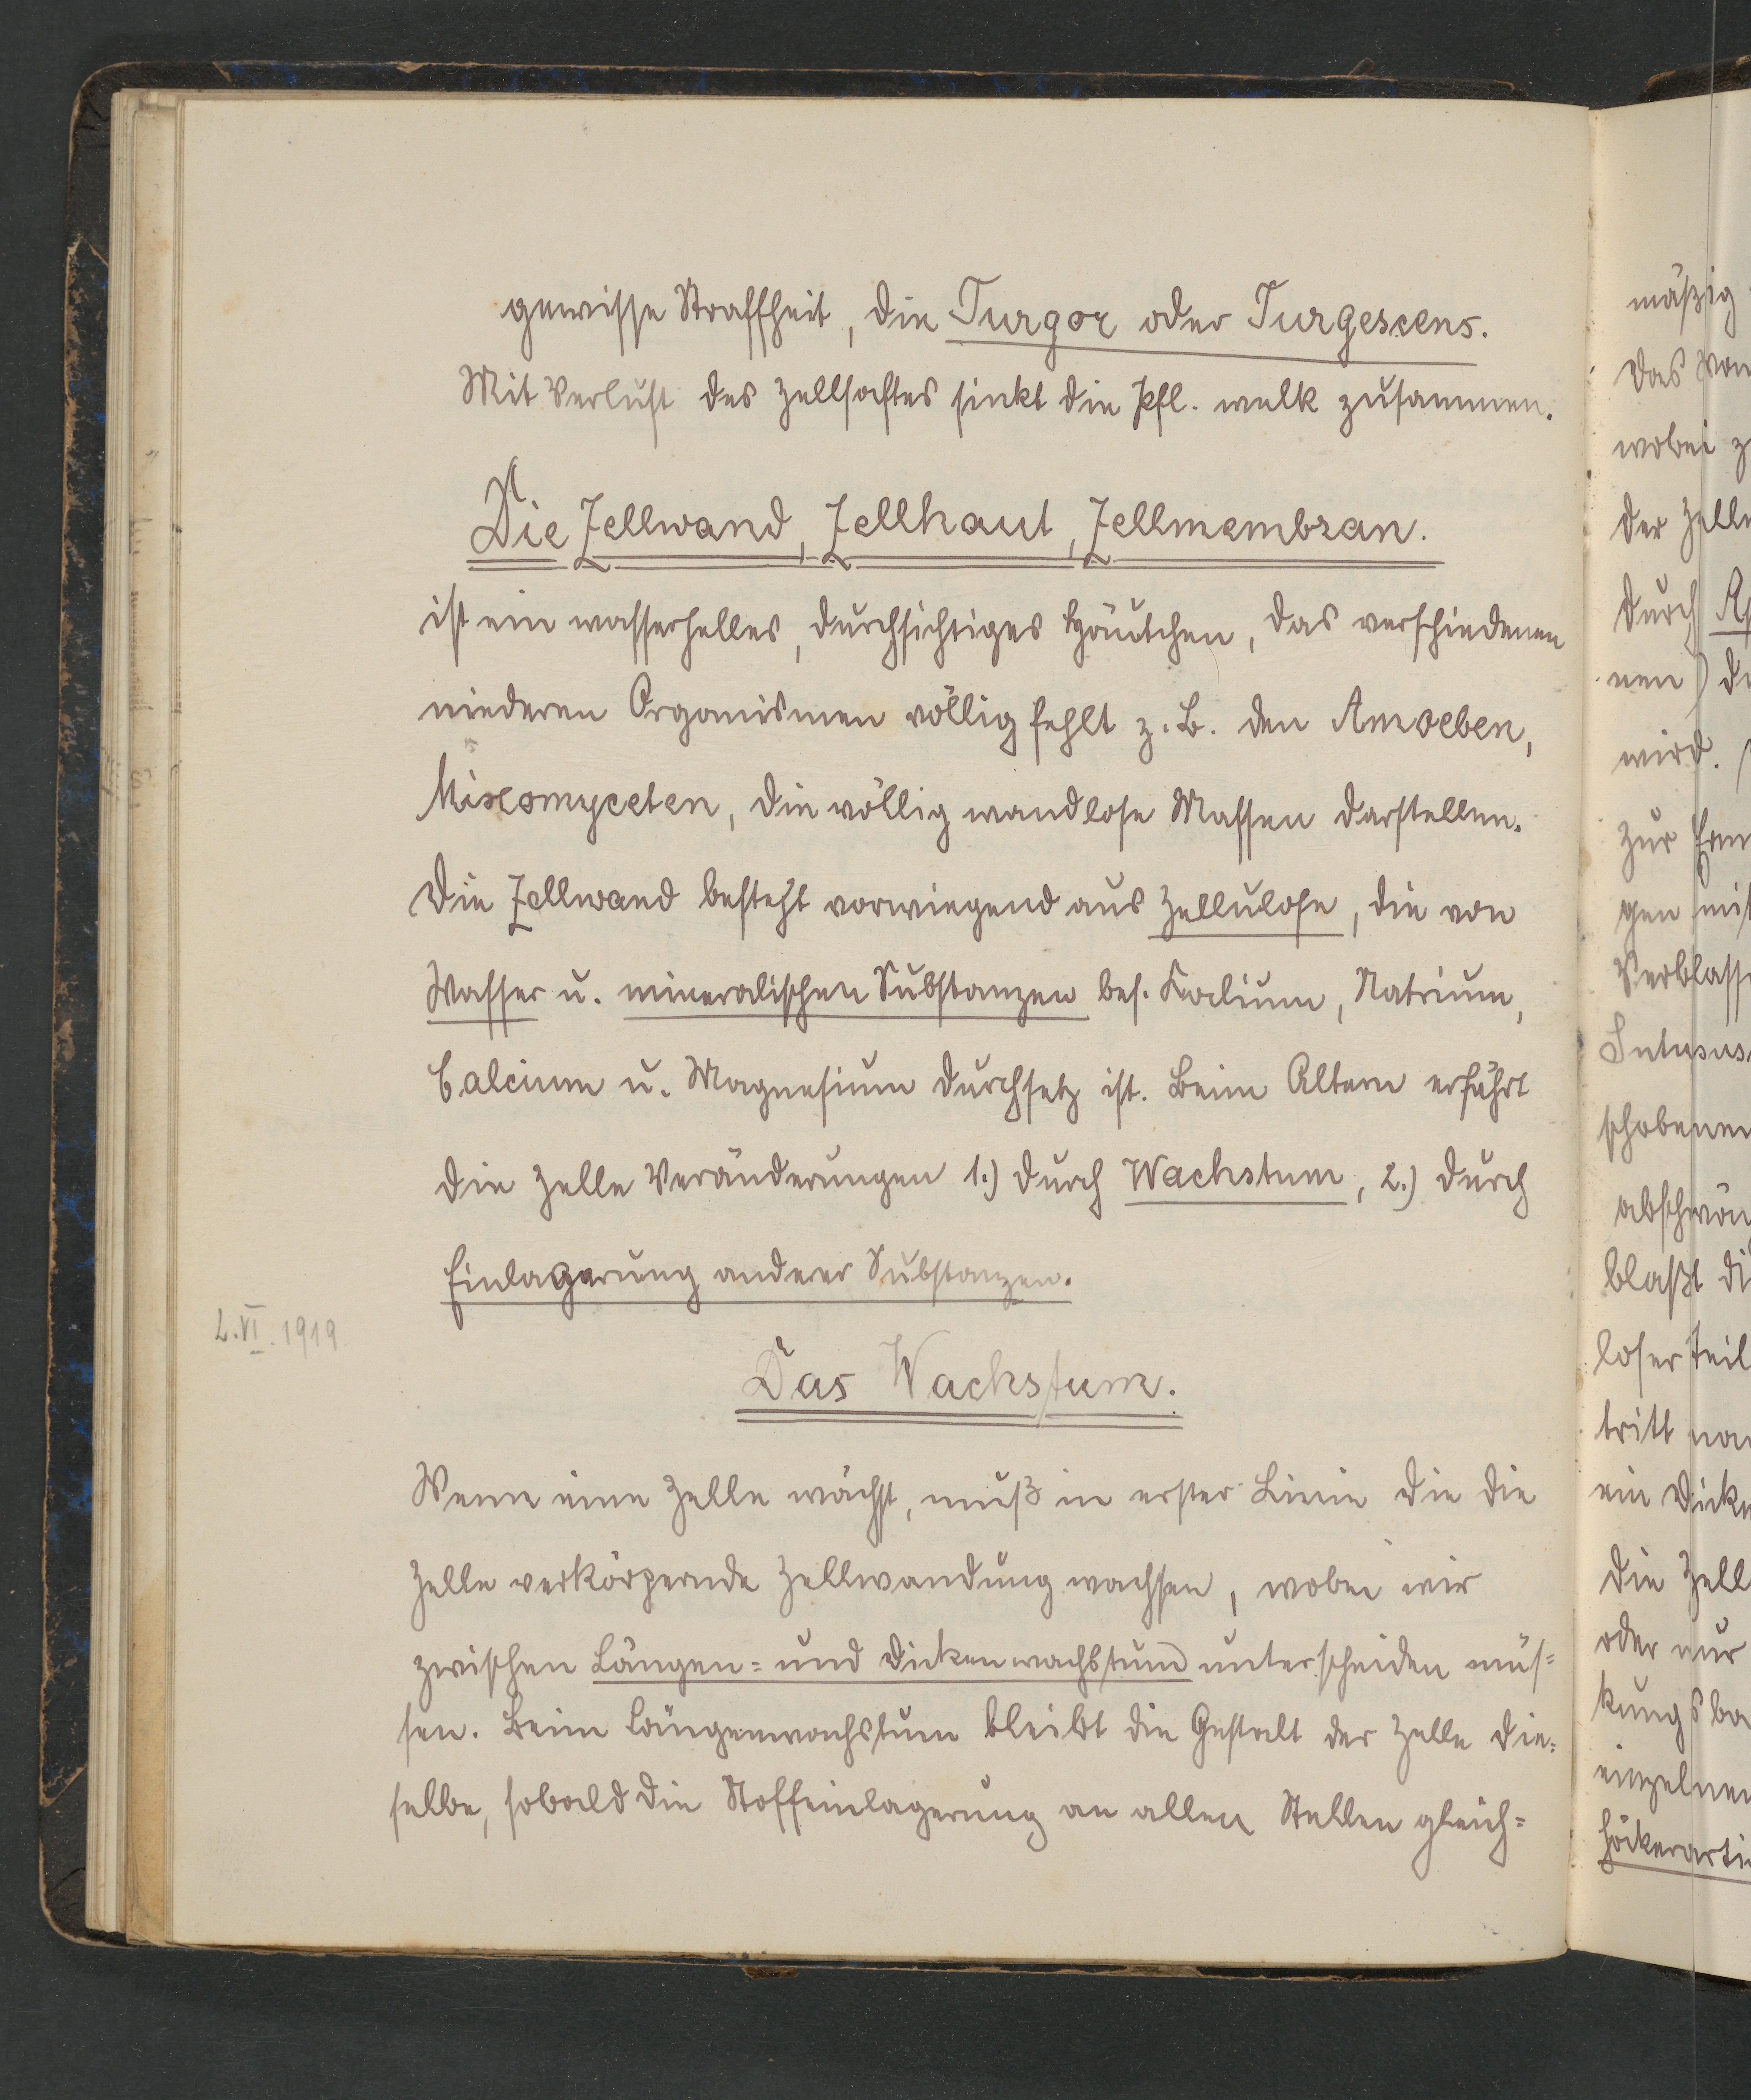 gewisse Straffheit, die Turgor oder Turgescens.
Mit Verlust des Zellsaftes sinkt die Pfl. welk zusammen.
Die Zellwand, Zellhaut, Zellmembran.
ist ein wasserhelles, durchsichtiges Häutchen, das verschiedenen
niederen Organismen völlig fehlt z. B. den Amoeben,
Mixomyceten, die völlig wandlose Massen darstellen.
Die Zellwand besteht vorwiegend aus Zellulose, die von
Wasser u. mineralischen Substanzen bes. Kalium, Natrium,
Calcium u. Magnesium durchsetz ist. Beim Altern erfährt
die Zelle Veränderungen 1.) durch Wachstum, 2.) durch
Einlagerung anderer Substanzen.
2.VI.1919
Das Wachstum.
Wenn eine Zelle wächst, muß in erster Linie die die
Zelle verkörpernde Zellwandung wachsen, wobei wir
zwischen Längen= und Dickenwachstum unterscheiden müs=
sen. Beim Längenwachstum bleibt die Gestalt der Zelle die=
selbe, sobald die Stoffeinlagerung an allen Stellen gleich=
mäßig
das
wobei z
der Zell
durch
nen) di
wird.
zur
gen mit
Verblass
Intusus
schobenen
blaßt di
loser Teil
tritt
ein
die Zell
oder nur
kungs
einzelnen
höckerarti